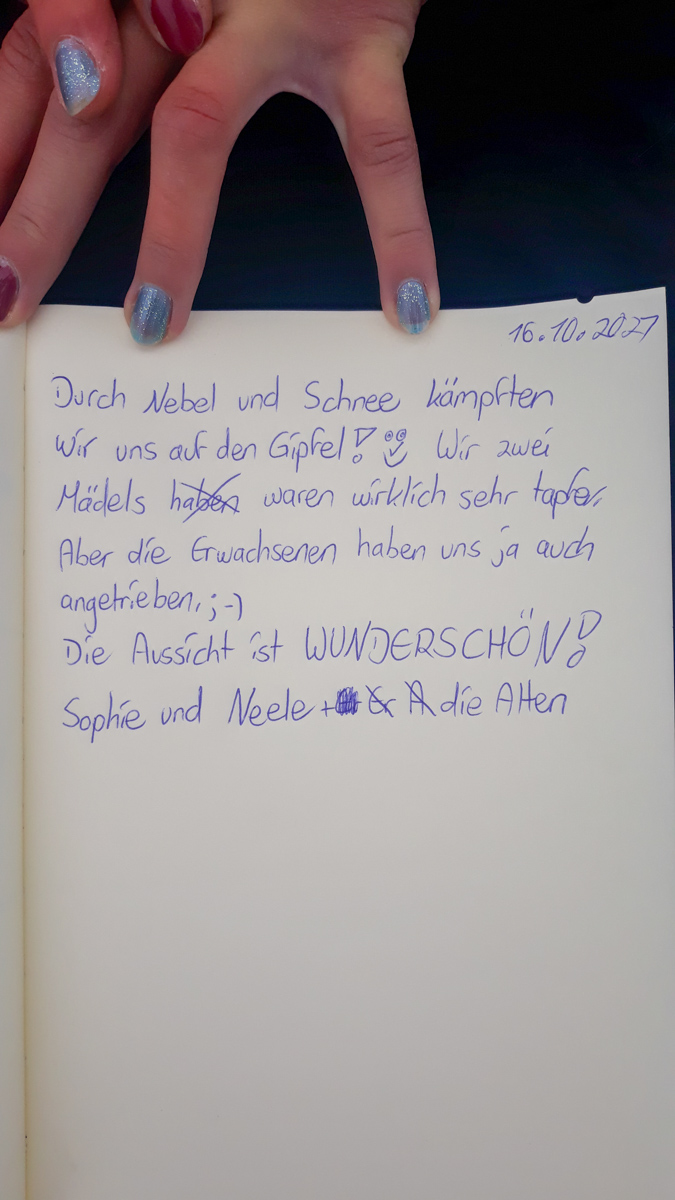 16.10.2027
Durch Nebel und Schnee kämpften
wir uns auf den Gipfel! Wir zwei
Mädels haben waren wirklich sehr tapfer.
Aber die Erwachsenen haben uns ja auch
angetrieben, ;-)
Die Aussicht ist WUNDERSCHÖN!
Sophie und Neele + Er A die Alten